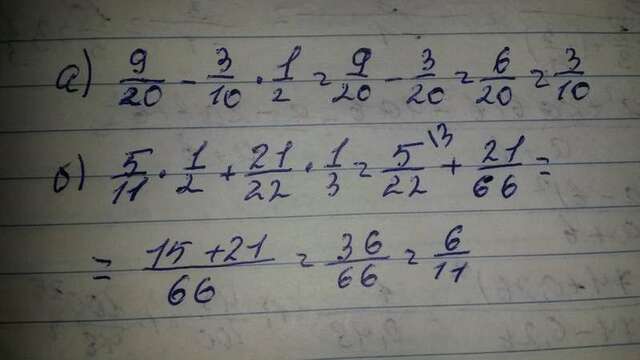 а) 9/20 - 3/10 · 1/2 = 9/20 - 3/20 = 6/20 = 3/10
б) 5/11 · 1/2 + 21/22 · 1/3 = 5\3/22 + 21/66 =
= 15+21/66 = 36/66 = 6/11